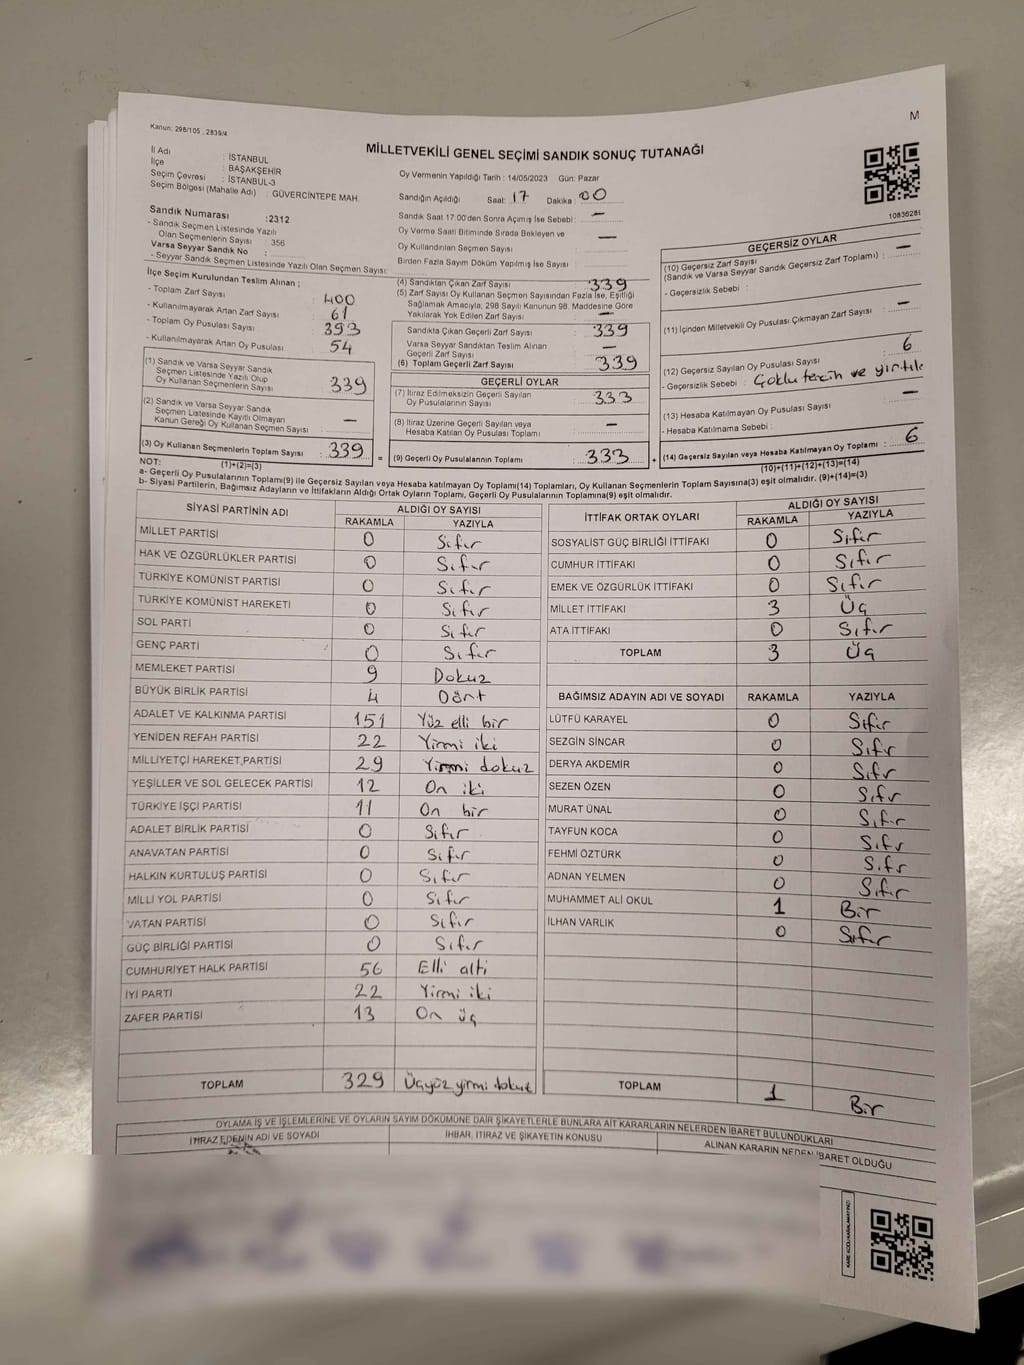 Kanun: 298/105 , 2839/4
M
MİLLETVEKİLİ GENEL SEÇİMİ SANDIK SONUÇ TUTANAĞI
İl Adı : İSTANBUL
İlçe : BAŞAKŞEHİR
Seçim Çevresi : İSTANBUL-3
Seçim Bölgesi (Mahalle Adı) : GÜVERCİNTEPE MAH.
Sandık Numarası :2312
- Sandık Seçmen Listesinde Yazılı
Olan Seçmenlerin Sayısı : 356
Varsa Seyyar Sandık No :
- Seyyar Sandık Seçmen Listesinde Yazılı Olan Seçmen Sayısı:
İlçe Seçim Kurulundan Teslim Alınan ;
- Toplam Zarf Sayısı : 400
- Kullanılmayarak Artan Zarf Sayısı : 61
- Toplam Oy Pusulası Sayısı : 393
- Kullanılmayarak Artan Oy Pusulası : 54
(1) Sandık ve Varsa Seyyar Sandık
Seçmen Listesinde Yazılı Olup
Oy Kullanan Seçmenlerin Sayısı : 339
(2) Sandık ve Varsa Seyyar Sandık
Seçmen Listesinde Kayıtlı Olmayan
Kanun Gereği Oy Kullanan Seçmen Sayısı : —
(3) Oy Kullanan Seçmenlerin Toplam Sayısı : 339
(1)+(2)=(3)
Oy Vermenin Yapıldığı Tarih : 14/05/2023 Gün: Pazar
Sandığın Açıldığı Saat: 17 Dakika : 00
Sandık Saat 17.00'den Sonra Açılmış İse Sebebi : —
Oy Verme Saati Bitiminde Sırada Bekleyen ve
Oy Kullandırılan Seçmen Sayısı : —
Birden Fazla Sayım Döküm Yapılmış İse Sayısı :
(4) Sandıktan Çıkan Zarf Sayısı : 339
(5) Zarf Sayısı Oy Kullanan Seçmen Sayısından Fazla İse, Eşitliği
Sağlamak Amacıyla; 298 Sayılı Kanunun 98. Maddesine Göre
Yakılarak Yok Edilen Zarf Sayısı : —
Sandıkta Çıkan Geçerli Zarf Sayısı : 339
Varsa Seyyar Sandıktan Teslim Alınan
Geçerli Zarf Sayısı : —
(6) Toplam Geçerli Zarf Sayısı : 339
GEÇERLİ OYLAR
(7) İtiraz Edilmeksizin Geçerli Sayılan
Oy Pusulalarının Sayısı : 333
(8) İtiraz Üzerine Geçerli Sayılan veya
Hesaba Katılan Oy Pusulası Toplamı : —
= (9) Geçerli Oy Pusulalarının Toplamı : 333 +
10836281
GEÇERSİZ OYLAR
(10) Geçersiz Zarf Sayısı
(Sandık ve Varsa Seyyar Sandık Geçersiz Zarf Toplamı) : —
- Geçersizlik Sebebi :
(11) İçinden Milletvekili Oy Pusulası Çıkmayan Zarf Sayısı : —
(12) Geçersiz Sayılan Oy Pusulası Sayısı : 6
- Geçersizlik Sebebi : Çoklu tercih ve
(13) Hesaba Katılmayan Oy Pusulası Sayısı : —
- Hesaba Katılmama Sebebi :
(14) Geçersiz Sayılan veya Hesaba Katılmayan Oy Toplamı : 6
(10)+(11)+(12)+(13)=(14)
NOT:
a- Geçerli Oy Pusulalarının Toplamı(9) ile Geçersiz Sayılan veya Hesaba katılmayan Oy Toplamı(14) Toplamları, Oy Kullanan Seçmenlerin Toplam Sayısına(3) eşit olmalıdır. (9)+(14)=(3)
b- Siyasi Partilerin, Bağımsız Adayların ve İttifakların Aldığı Ortak Oyların Toplamı, Geçerli Oy Pusulalarının Toplamına(9) eşit olmalıdır.
SİYASİ PARTİNİN ADI ALDIĞI OY SAYISI
RAKAMLA YAZIYLA
MİLLET PARTİSİ 0 Sıfır
HAK VE ÖZGÜRLÜKLER PARTİSİ 0 Sıfır
TÜRKİYE KOMÜNİST PARTİSİ 0 Sıfır
TÜRKİYE KOMÜNİST HAREKETİ 0 Sıfır
SOL PARTİ 0 Sıfır
GENÇ PARTİ 0 Sıfır
MEMLEKET PARTİSİ 9 Dokuz
BÜYÜK BİRLİK PARTİSİ 4 Dört
ADALET VE KALKINMA PARTİSİ 151 Yüz elli bir
YENİDEN REFAH PARTİSİ 22 Yirmi iki
MİLLİYETÇİ HAREKET PARTİSİ 29 Yirmi dokuz
YEŞİLLER VE SOL GELECEK PARTİSİ 12 On iki
TÜRKİYE İŞÇİ PARTİSİ 11 On bir
ADALET BİRLİK PARTİSİ 0 Sıfır
ANAVATAN PARTİSİ 0 Sıfır
HALKIN KURTULUŞ PARTİSİ 0 Sıfır
MİLLİ YOL PARTİSİ 0 Sıfır
VATAN PARTİSİ 0 Sıfır
GÜÇ BİRLİĞİ PARTİSİ 0 Sıfır
CUMHURİYET HALK PARTİSİ 56 Elli altı
İYİ PARTİ 22 Yirmi iki
ZAFER PARTİSİ 13 On üç
TOPLAM 329 Üçyüz yirmi dokuz
İTTİFAK ORTAK OYLARI ALDIĞI OY SAYISI
RAKAMLA YAZIYLA
SOSYALİST GÜÇ BİRLİĞİ İTTİFAKI 0 Sıfır
CUMHUR İTTİFAKI 0 Sıfır
EMEK VE ÖZGÜRLÜK İTTİFAKI 0 Sıfır
MİLLET İTTİFAKI 3 Üç
ATA İTTİFAKI 0 Sıfır
TOPLAM 3 Üç
BAĞIMSIZ ADAYIN ADI VE SOYADI RAKAMLA YAZIYLA
LÜTFÜ KARAYEL 0 Sıfır
SEZGİN SİNCAR 0 Sıfır
DERYA AKDEMİR 0 Sıfır
SEZEN ÖZEN 0 Sıfır
MURAT ÜNAL 0 Sıfır
TAYFUN KOCA 0 Sıfır
FEHMİ ÖZTÜRK 0 Sıfır
ADNAN YELMEN 0 Sıfır
MUHAMMET ALİ OKUL 1 Bir
İLHAN VARLIK 0 Sıfır
TOPLAM 1 Bir
OYLAMA İŞ VE İŞLEMLERİNE VE OYLARIN SAYIM DÖKÜMÜNE DAİR ŞİKAYETLERLE BUNLARA AİT KARARLARIN NELERDEN İBARET BULUNDUKLARI
İTİRAZ EDENİN ADI VE SOYADI İHBAR, İTİRAZ VE ŞİKAYETİN KONUSU ALINAN KARARIN NEDEN İBARET OLDUĞU